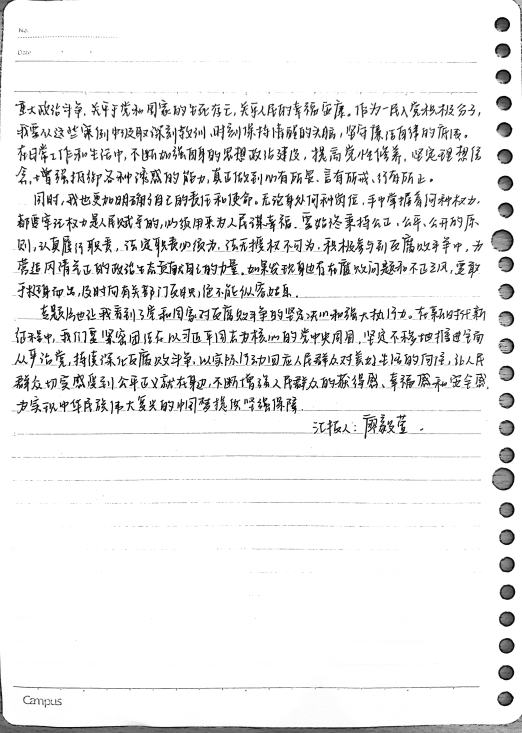 No.
Date
重大政治斗争,关乎于党和国家的生死存亡,关乎人民的幸福安康。作为一名入党积极分子,
我要从这些案例中汲取深刻教训,时刻保持清醒的头脑,坚守廉洁自律的底线。
在日常工作和生活中,不断加强自身的思想政治建设,提高党性修养,坚定理想信
念,增强抵御各种诱惑的能力,真正做到心有所畏、言有所戒、行有所止。
同时,我也更加明确了自己的责任和使命。无论身处何种岗位,手中掌握着何种权力,
都要牢记权力是人民赋予的,必须用来为人民谋幸福。要始终秉持公正、公平、公开的原
则,认真履行职责,法定职责必须为,法无授权不可为。积极参与到反腐败斗争中,为
营造风清气正的政治生态贡献自己的力量。如果发现身边存在腐败问题和不正之风,要敢
于挺身而出,及时向有关部门反映,绝不能纵容姑息。
专题片也让我看到了党和国家对反腐败斗争的坚定决心和强大执行力。在新时代新
征程中,我们要紧密团结在以习近平同志为核心的党中央周围,坚定不移地推进全面
从严治党,持续深化反腐败斗争,以实际行动回应人民群众对美好生活的向往,让人民
群众切实感受到公平正义就在身边,不断增强人民群众的获得感、幸福感和安全感,
为实现中华民族伟大复兴的中国梦提供坚强保障。
汇报人:廖毅萱.
Campus